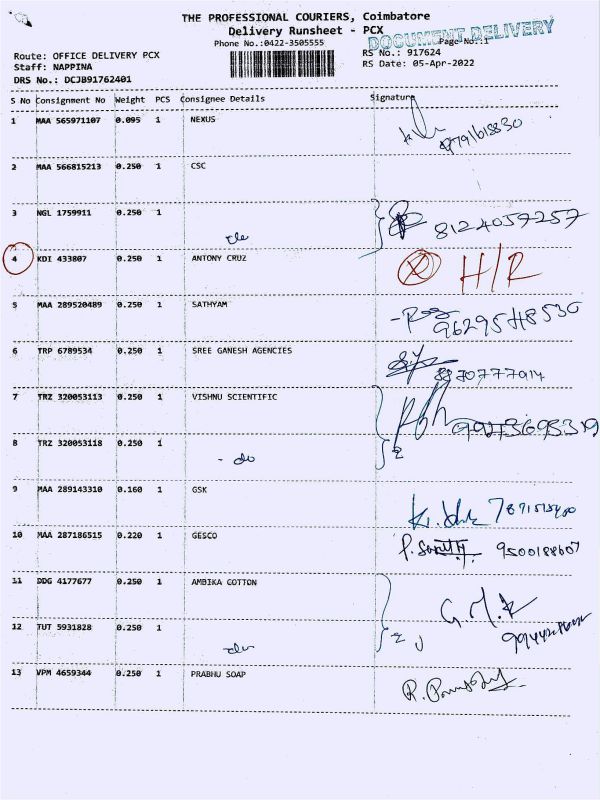 THE PROFESSIONAL COURIERS, Coimbatore
Delivery Runsheet - PCX
DOCUMENT DELIVERY
Phone No.:0422-3505555
Page No.:1
Route: OFFICE DELIVERY PCX
RS No.: 917624
Staff: NAPPINA
RS Date: 05-Apr-2022
DRS No.: DCJB91762401
S No Consignment No Weight PCS Consignee Details Signature
1 MAA 565971107 0.095 1 NEXUS
2 MAA 566815213 0.250 1 CSC
3 NGL 1759911 0.250 1 8124057257
4 KDI 433807 0.250 1 ANTONY CRUZ H/R
5 MAA 289520489 0.250 1 SATHYAM
6 TRP 6789534 0.250 1 SREE GANESH AGENCIES 8870777914
7 TRZ 320053113 0.250 1 VISHNU SCIENTIFIC
8 TRZ 320053118 0.250 1 - do 2
9 MAA 289143310 0.160 1 GSK
10 MAA 287186515 0.220 1 GESCO 9500188607
11 DDG 4177677 0.250 1 AMBIKA COTTON G.M.K
12 TUT 5931828 0.250 1 2
13 VPM 4659344 0.250 1 PRABHU SOAP